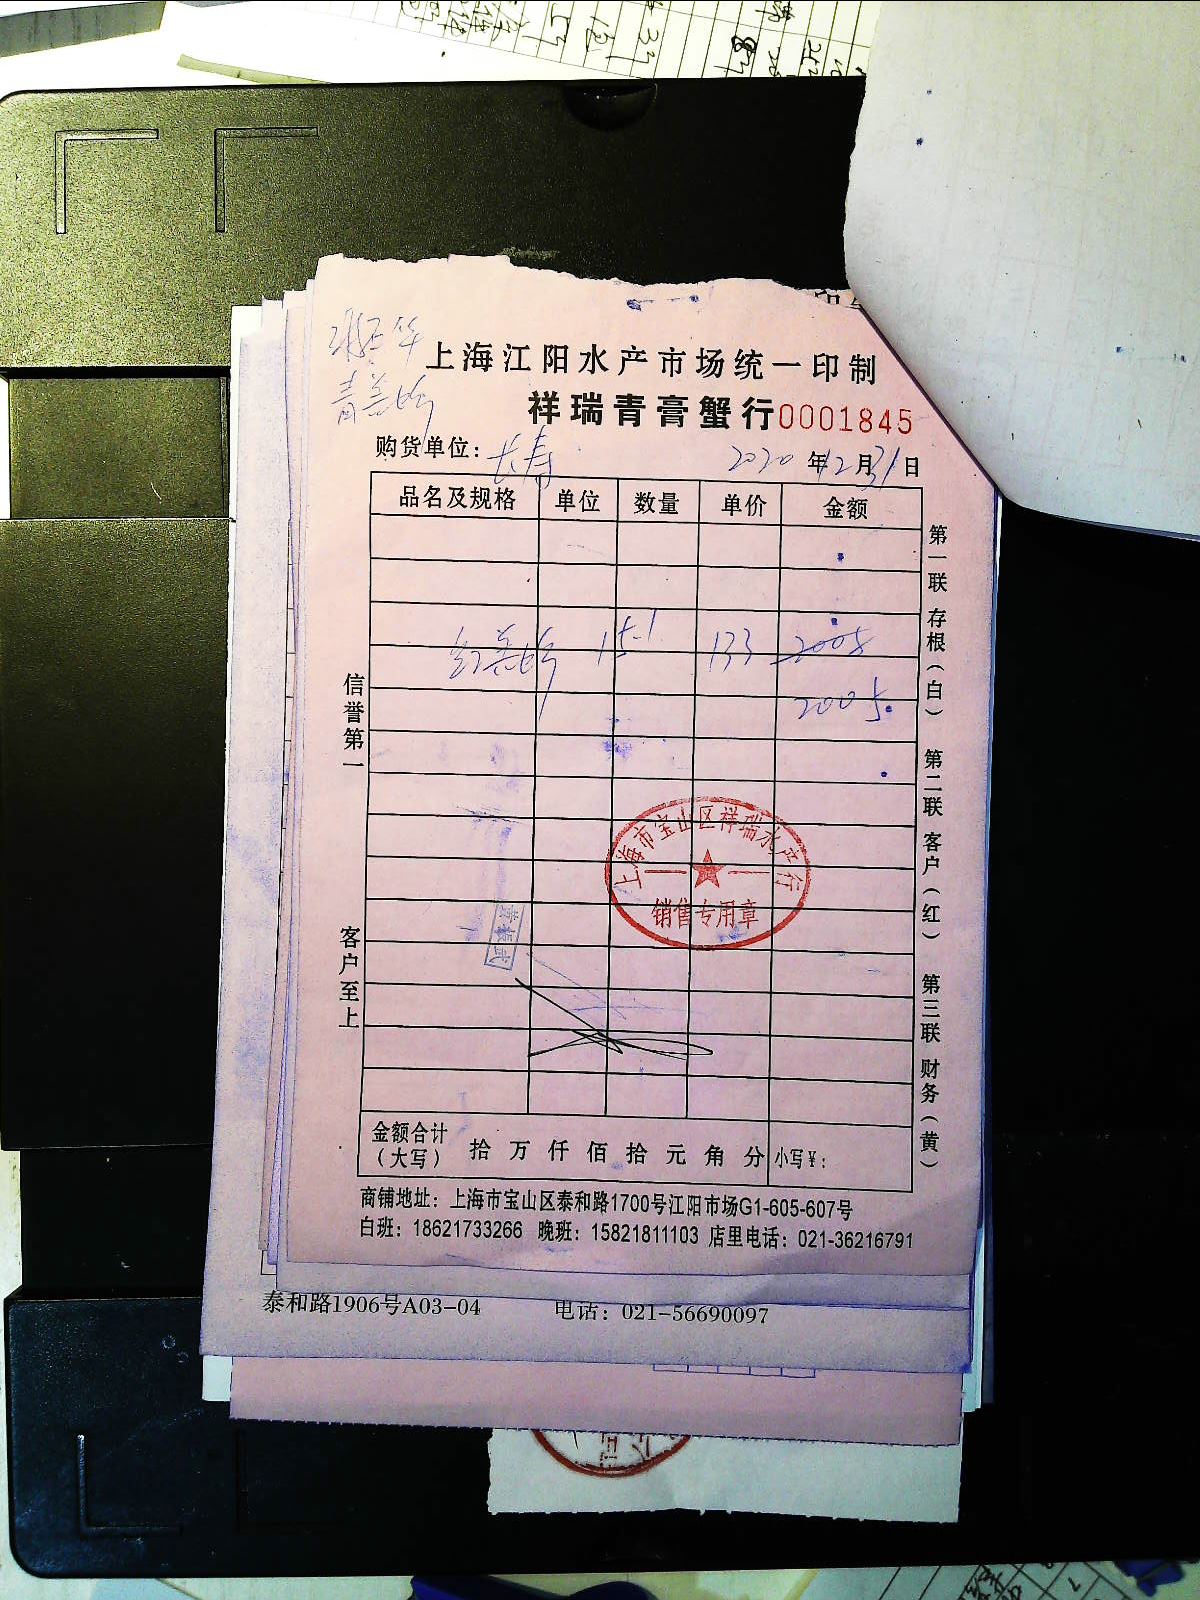 上海江阳水产市场统一印制
祥瑞青膏蟹行0001845
购货单位：长寿 2020年12月31日
品名及规格 单位 数量 单价 金额
15.1 133 2008
2005.
信誉第一
客户至上
第一联 存根（白） 第二联 客户（红） 第三联 财务（黄）
上海市宝山区祥瑞水产行
销售专用章
金额合计（大写） 拾 万 仟 佰 拾 元 角 分 小写¥：
商铺地址：上海市宝山区泰和路1700号江阳市场G1-605-607号
白班：18621733266 晚班：15821811103 店里电话：021-36216791
泰和路1906号A03-04 电话：021-56690097